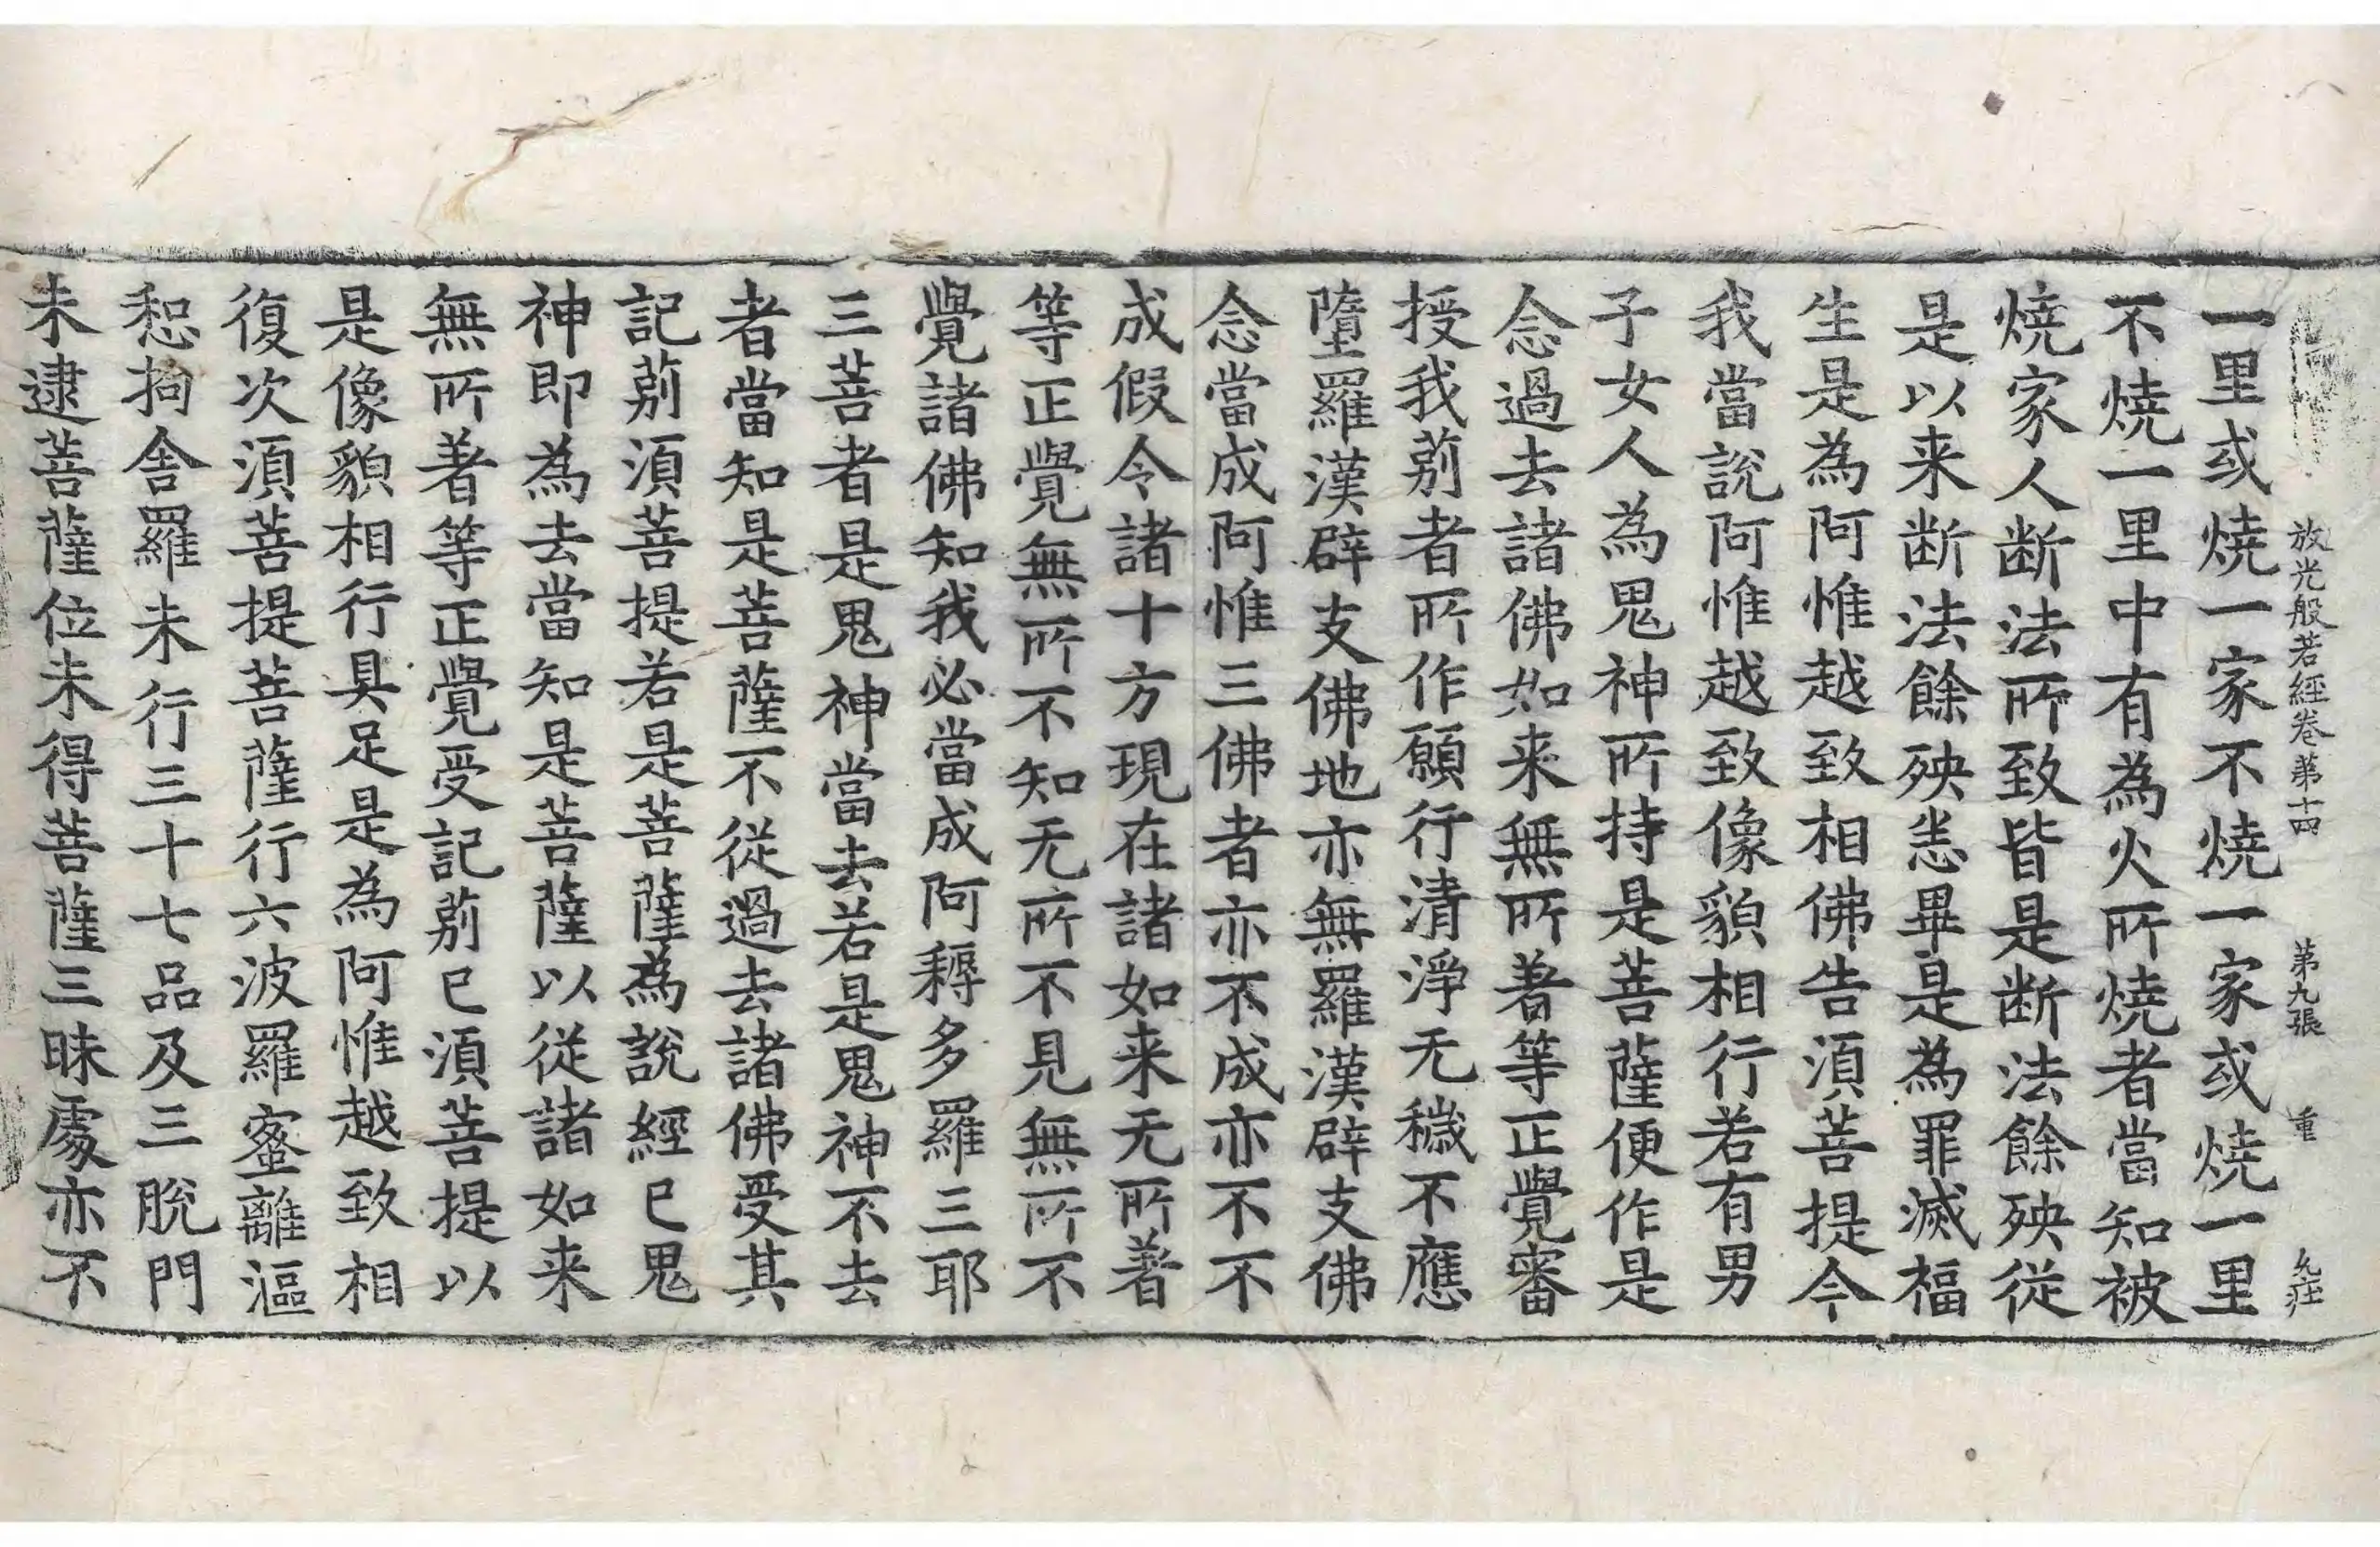 放光般若經卷第十四 第九張 重
一里或燒一家不燒一家或燒一里
不燒一里中有為火所燒者當知被
燒家人断法所致皆是断法餘殃従
是以来断法餘殃恙畢是為罪滅福
生是為阿惟越致相佛告湏菩提今
我當說阿惟越致像貌相行若有男
子女人為鬼神所持是菩薩便作是
念過去諸佛如来無所著等正覺審
授我莂者所作願行清淨无穢不應
墮羅漢辟支佛地亦無羅漢辟支佛
念當成阿惟三佛者亦不成亦不不
成假令諸十方現在諸如来无所著
等正覺無所不知无所不見無所不
覺諸佛知我必當成阿耨多羅三耶
三菩者是鬼神當去若是鬼神不去
者當知是菩薩不從過去諸佛受其
記莂湏菩提若是菩薩為說經已鬼
神即為去當知是菩薩以從諸如来
無所著等正覺受記莂已湏菩提以
是像貌相行具足是為阿惟越致相
復次湏菩提菩薩行六波羅蜜離漚
惒拘舍羅未行三十七品及三脫門
未逮菩薩位未得菩薩三昧處亦不